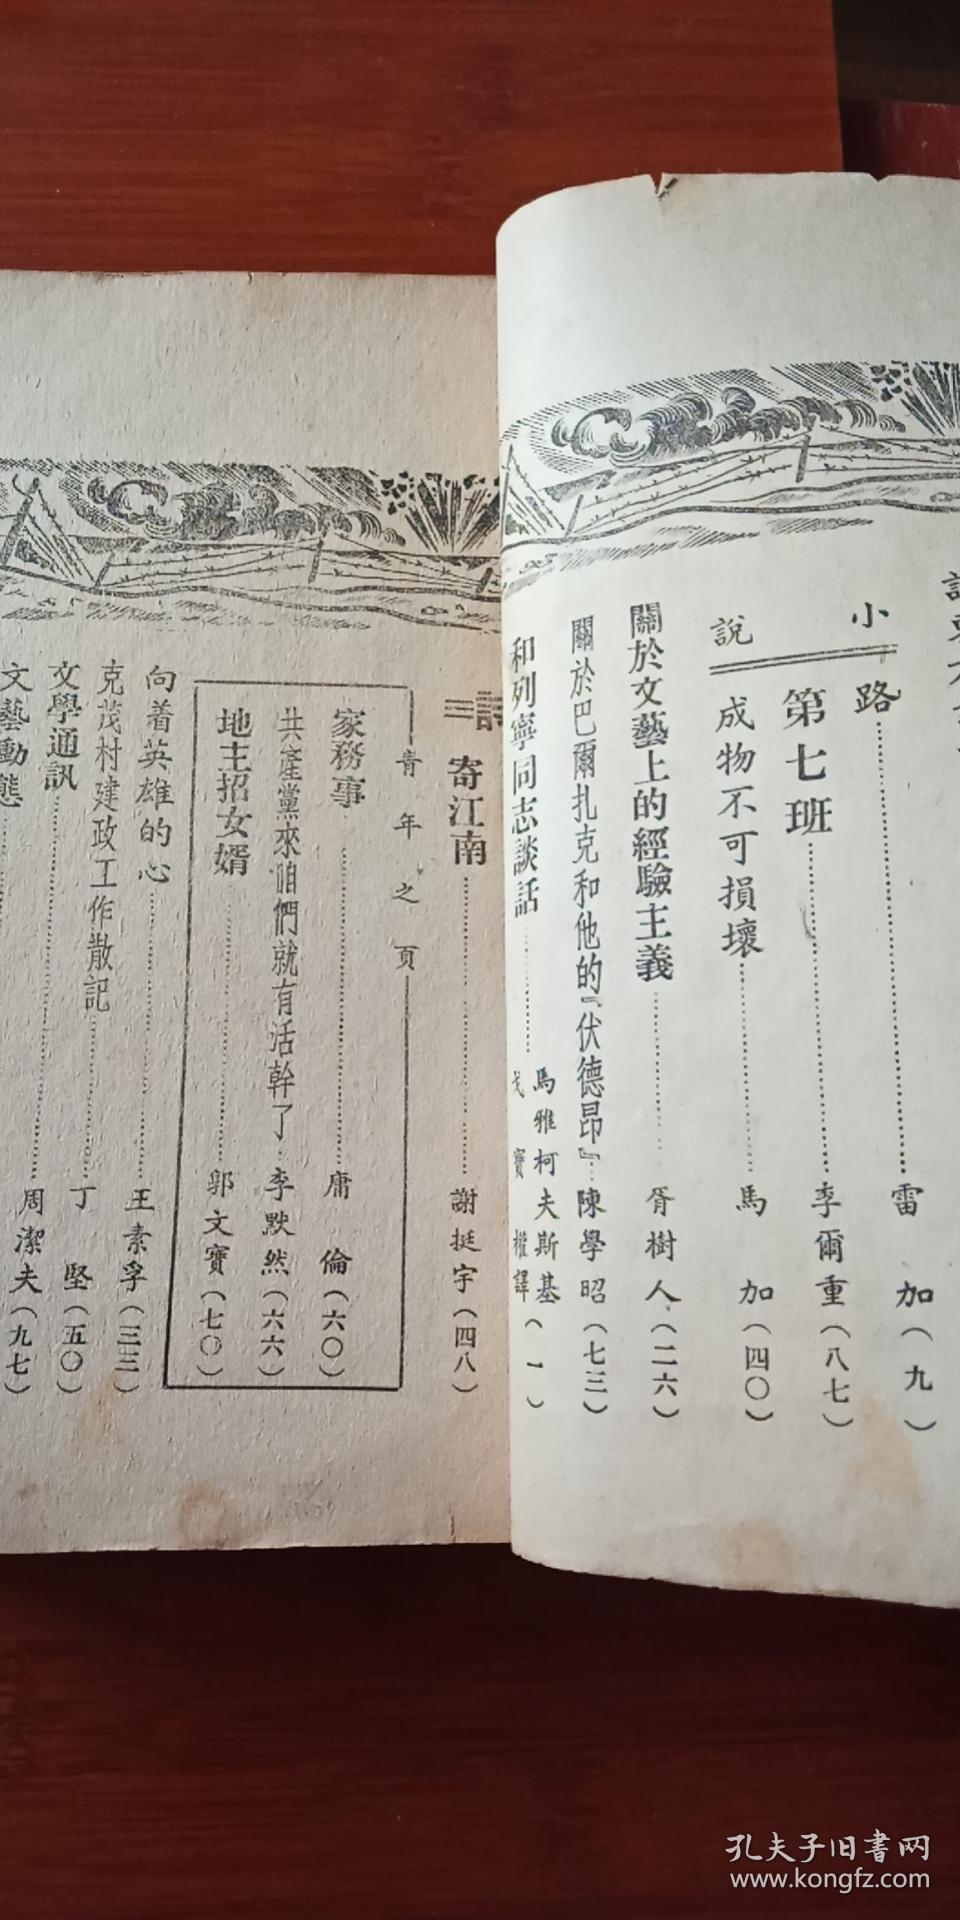 小說
路……雷加(九)
第七班……李爾重(八七)
成物不可損壞……馬加(四〇)
關於文藝上的經驗主義……胥樹人(二六)
關於巴爾扎克和他的『伏德昂』…陳學昭(七三)
和列寧同志談話……馬雅柯夫斯基 戈寶權譯(一)
詩
寄江南……謝挺宇(四八)
青年之頁
家務事……庸倫(六〇)
共產黨來咱們就有活幹了…李默然(六六)
地主招女婿……郭文寶(七〇)
向着英雄的心……王素孚(三三)
克茂村建政工作散記……丁堅(五〇)
文學通訊……周潔夫(九七)
文藝動態
孔夫子旧書网
www.kongfz.com